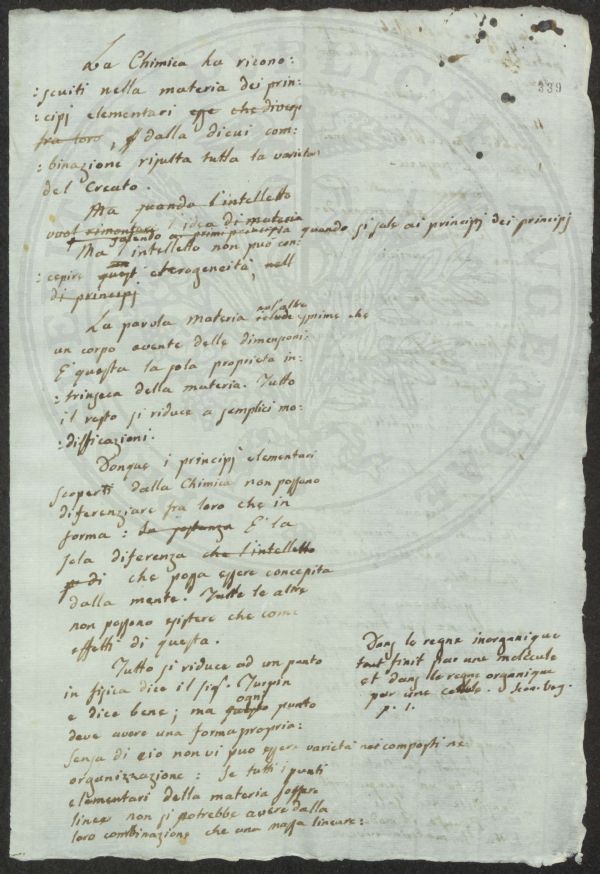 339
La Chimica ha ricono:
:sciuti nella materia dei prin:
:cipj elementari esse che diversi
fra loro, dalla dicui com:
:binazione risulta tutta la varieta
del Creato.
Ma quando l'intelletto
vuol rimontare l'idea di materia
salendo ai primi principj quando si sale ai principj dei principj
Ma l'intelletto non può con:
:cepire quest eterogeneità, nell
di principj
La parola materia null'altro
esprime che
un corpo avente delle dimensioni.
È questa la sola proprietà in:
:trinseca della materia. Tutto
il resto si riduce a semplici mo:
:difficazioni.
Donque i principj elementari
scoperti dalla Chimica non possono
diferenziare fra loro che in
forma: la sostanza È la
sola diferenza che l'intelletto
di che possa essere concepita
dalla mente. Tutte le altre
non possono esistere che come
effetti di questa.
Tutto si riduce ad un punto
in fisica dice il sigr. Turpin
ogni
e dice bene; ma questo punto
deve avere una forma propria:
senza di cio non vi può essere varietà nei composti ne
organizzazione: Se tutti i punti
elementari della materia fossero
linee non si potrebbe avere dalla
loro combinazione che una massa lineare:
Dans le regne inorganique
tout finit par une molécule
et dans le regne organique
par une cellule. Icon. veg.
p. 1.